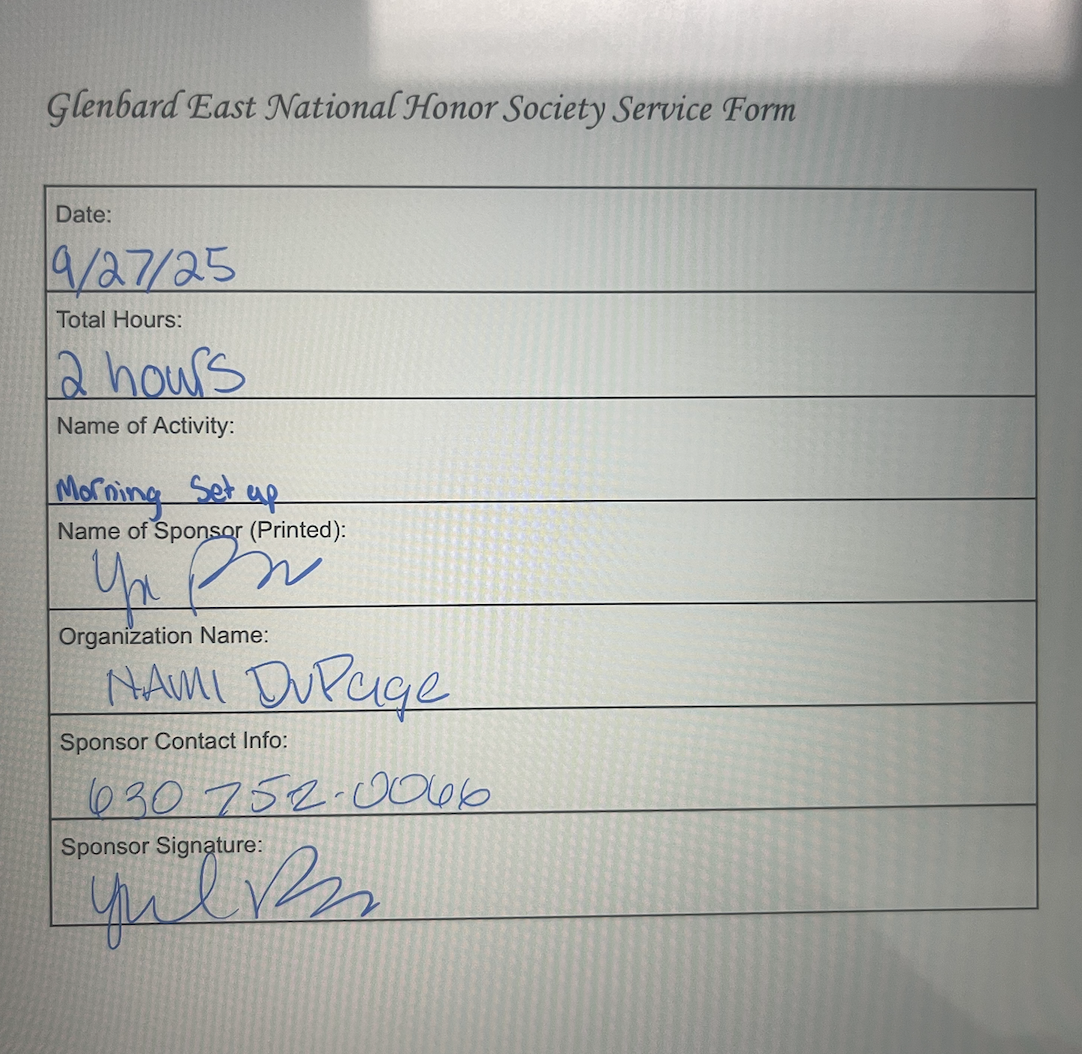 Glenbard East National Honor Society Service Form
Date:
9/27/25
Total Hours:
2 hours
Name of Activity:
Morning Set up
Name of Sponsor (Printed):
Organization Name:
NAMI DuPage
Sponsor Contact Info:
630 752-0066
Sponsor Signature: